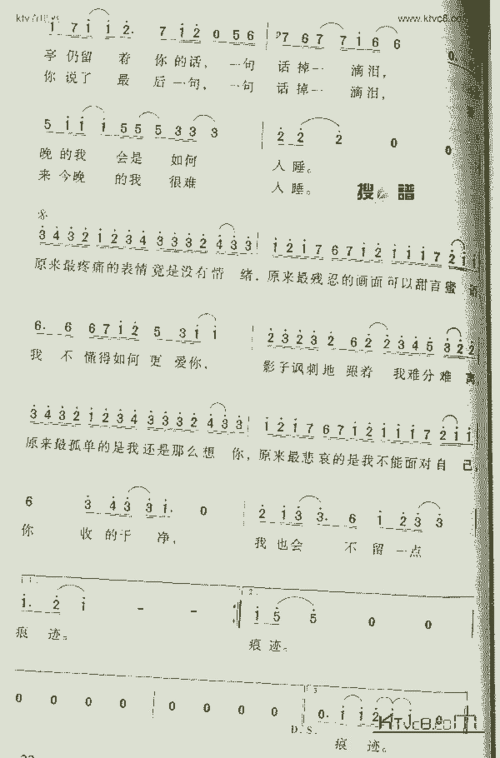 www.ktvc8.com
1 7 1 1 2. 7 1 2 0 5 6 7 6 7 7 1 6 6 0.
享仍留 着 你的话, 一句 话掉一 滴泪,
你说了 最 后一句, 一句 话掉一 滴泪,
5 1 1 1 5 5 5 3 3 3 2 2 2 0 0
晚的我 会是 如何 入睡。
来今晚 的我 很难 入睡。 搜 谱
3 4 3 2 1 2 3 4 3 2 3 4 3 3 3 2 4 3 3 1 2 1 7 6 7 1 2 1 1 1 7 2 1 1
原来最疼痛的表情竟是没有情 绪, 原来最残忍的画面可以甜言蜜
6. 6 6 7 1 2 5 3 1 1 2 3 2 3 2 2 6 2 2 3 4 5 3 2 2
我 不 懂得如何 更 爱你, 影子讽刺地 跟着 我难分难 离,
3 4 3 2 1 2 3 4 3 2 3 4 3 3 3 2 4 3 3 1 2 1 7 6 7 1 2 1 1 1 7 2 1 1
原来最孤单的是我还是那么想 你, 原来最悲哀的是我不能面对自 己,
6 3 4 3 3 1. 0 2 1 3 3. 6 1 2 3 3
你 收的干 净, 我也会 不 留一点
1. 2.
1. 2 1 - - 1 5 5 0 0
痕 迹。 痕迹。
3.
0 0 0 0 0 0 0 0 0. 1 1 2 1 1 0
D.S. KTvc8.com
痕 迹。